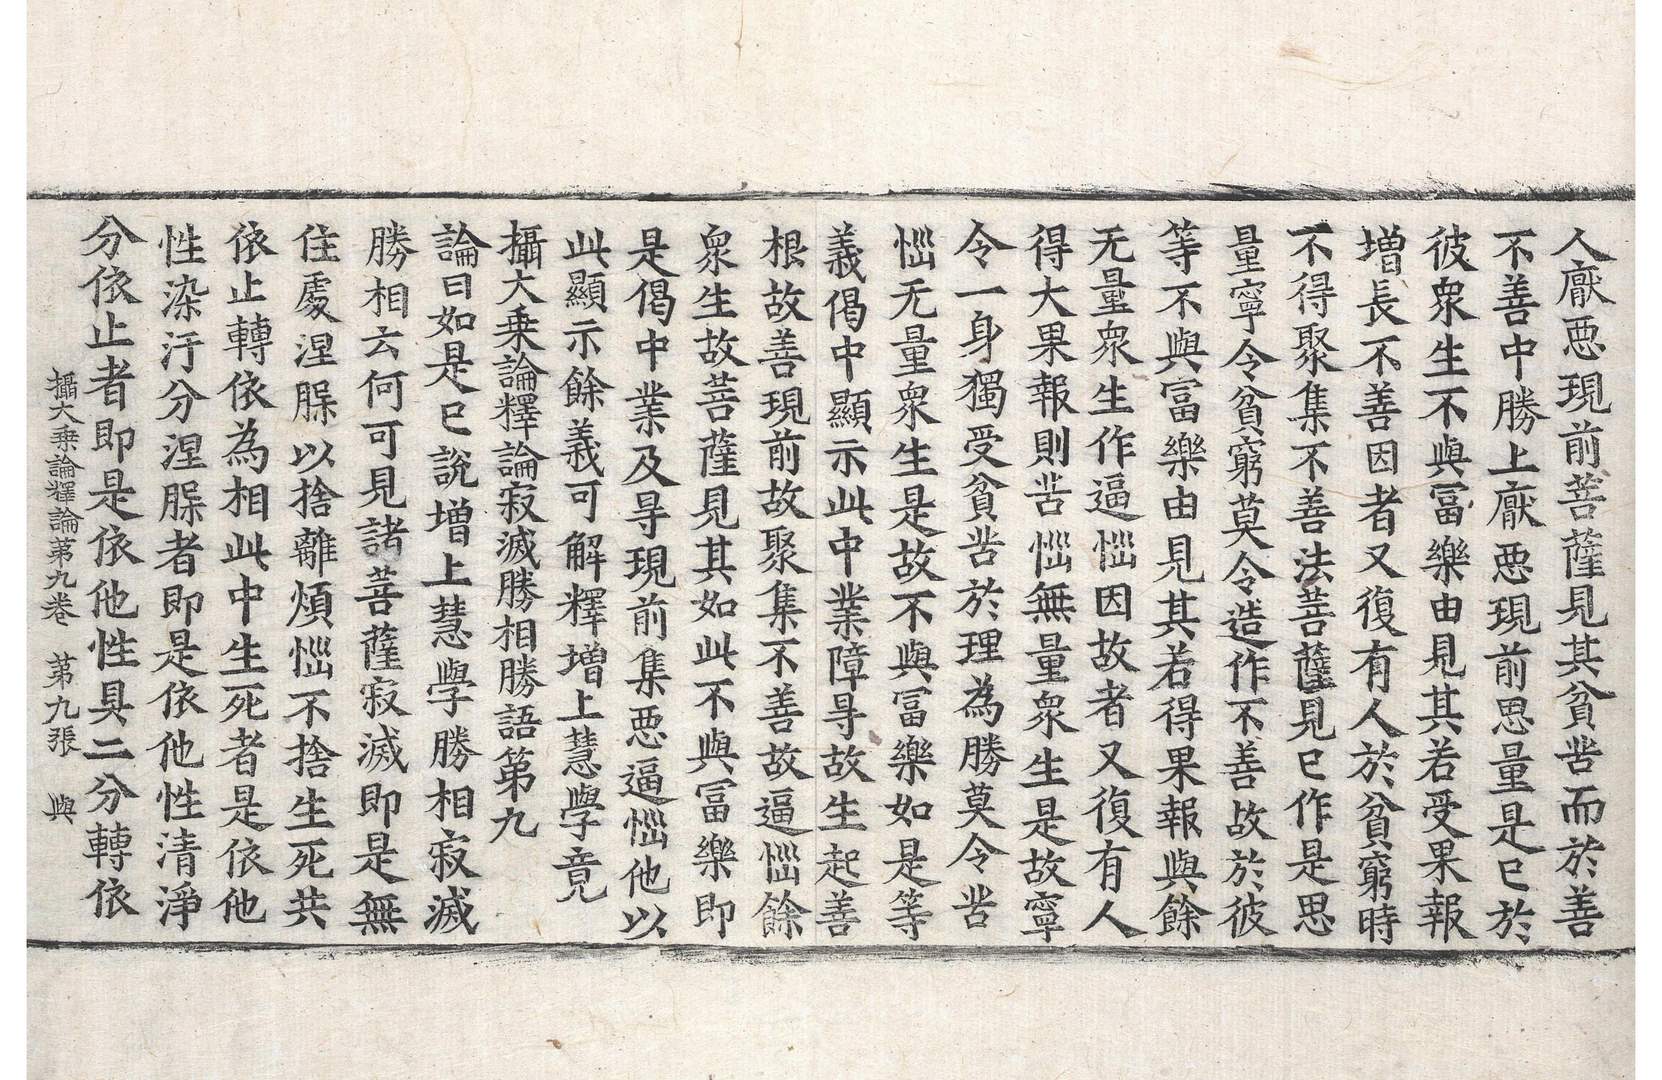 人厭惡現前菩薩見其貧苦而於善
不善中勝上厭惡現前思量是已於
彼衆生不與冨樂由見其若受果報
增長不善因者又復有人於貧窮時
不得聚集不善法菩薩見已作是思
量寧令貧窮莫令造作不善故於彼
等不與冨樂由見其若得果報與餘
无量衆生作逼惱因故者又復有人
得大果報則苦惱無量衆生是故寧
令一身獨受貧苦於理為勝莫令苦
惱无量衆生是故不與冨樂如是等
義偈中顯示此中業障㝵故生起善
根故善現前故聚集不善故逼惱餘
衆生故菩薩見其如此不與冨樂即
是偈中業及㝵現前集惡逼惱他以
此顯示餘義可解釋增上慧學竟
攝大乗論釋論寂滅勝相勝語第九
論曰如是已說增上慧學勝相寂滅
勝相云何可見諸菩薩寂滅即是無
住處涅槃以捨離煩惱不捨生死共
依止轉依為相此中生死者是依他
性染汙分涅槃者即是依他性清淨
分依止者即是依他性具二分轉依
攝大乗論釋論第九卷　第九張　與